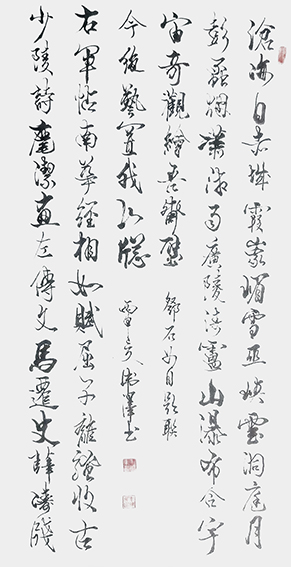 滄海日赤城霞峩嵋雪巫峽雲洞庭月
彭蠡烟瀟湘雨廣陵濤廬山瀑布合宇
宙奇觀繪吾齋壁
少陵詩摩詰畫左傳文馬遷史薛濤牋
右軍帖南華經相如賦屈子離騷收古
今絕藝置我山窗
鄧石如自題聯